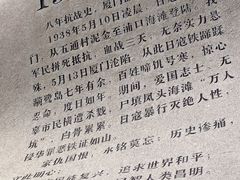 八年抗战史，厦门
1938年5月10日凌晨，日
门。从五通村泥金至浦口海滩登陆。我
军民拼死抵抗，血战三天，无奈实力悬
殊，5月13日厦门沦陷，从此日寇铁蹄蹂
躏鹭岛七年有余，百姓啼饥号寒，惊心
悲愤，度日如年。期间，爱国志士、无
辜市民横遭杀戮，尸填凤头海滩“万人
坑”，白骨累累。日寇暴行灭绝人性，
侵华罪恶铁证如山。
家仇国恨，永铭莫忘；历史渗痛，
追求世界和平，
人类昌明。